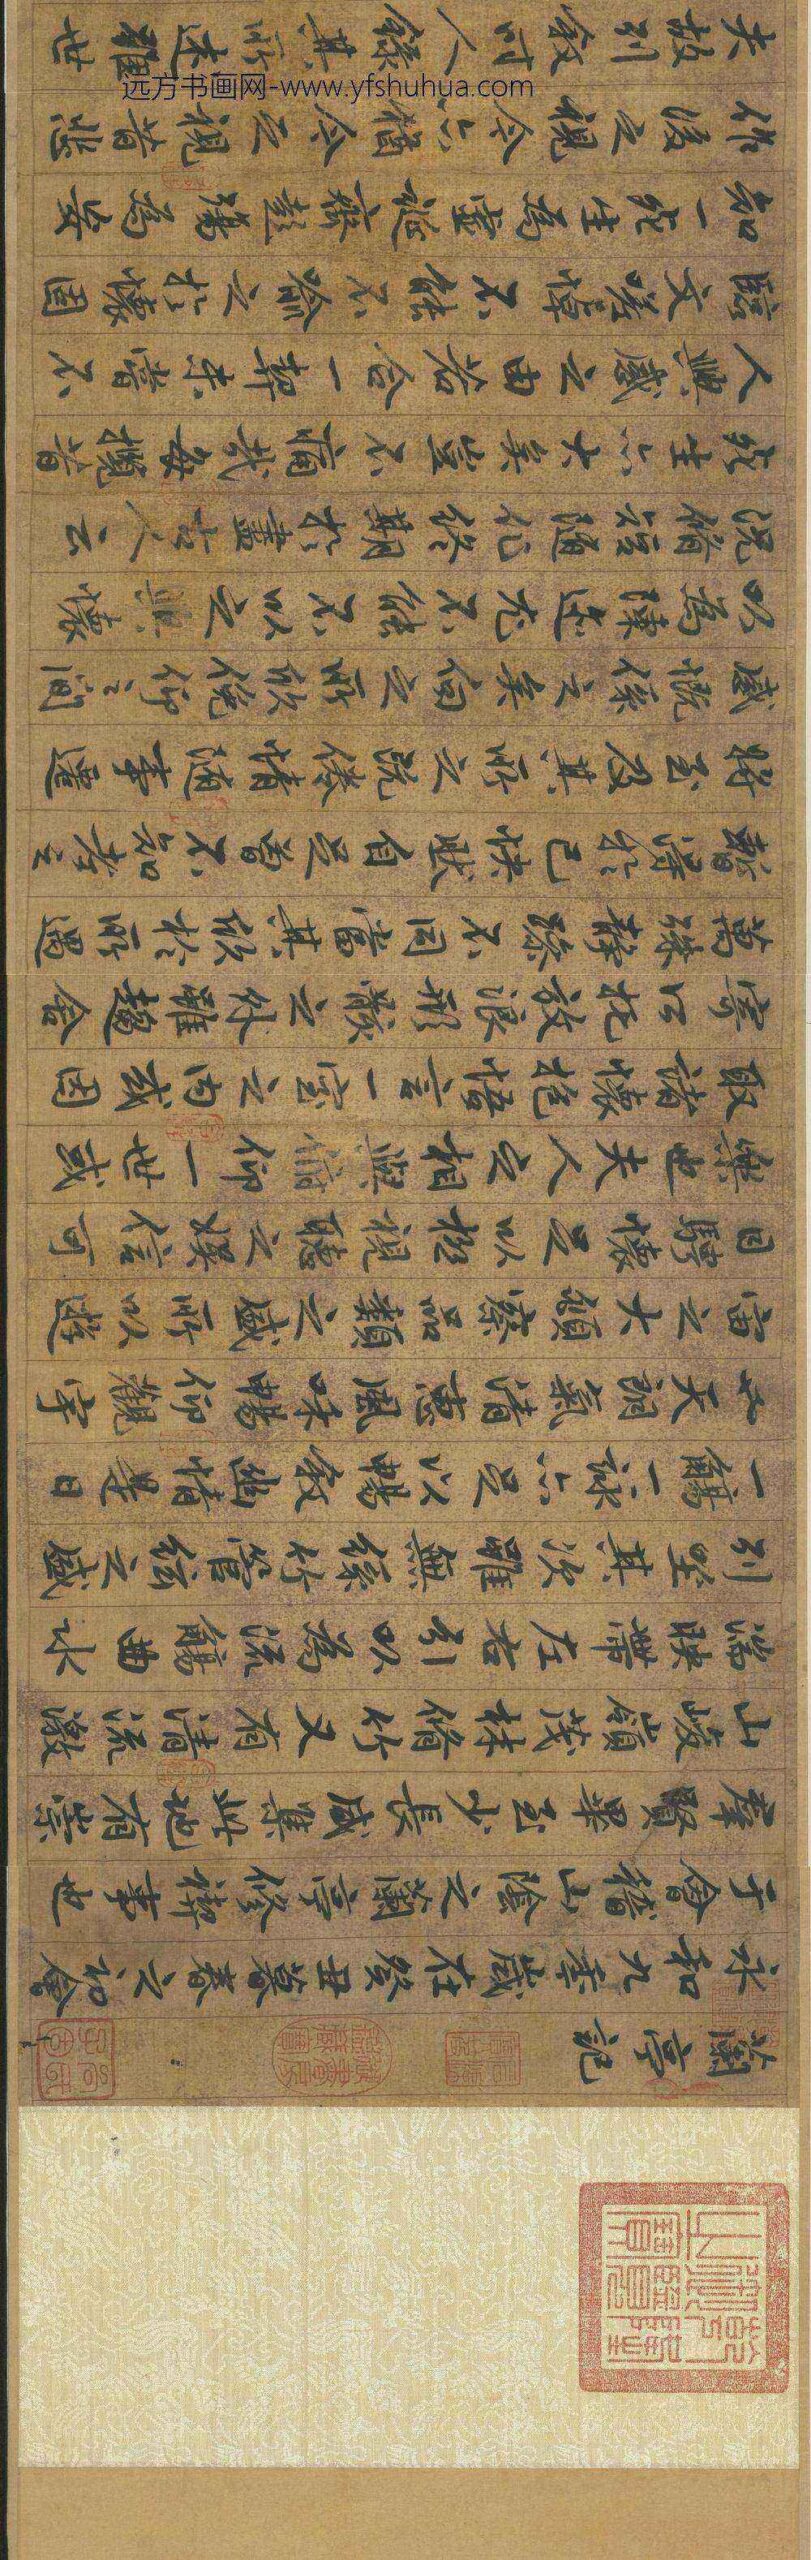 蘭亭記
永和九年歲在癸丑暮春之初會
于會稽山陰之蘭亭修禊事也
羣賢畢至少長咸集此地有崇
山峻嶺茂林脩竹又有清流激
湍映帶左右引以為流觴曲水
列坐其次雖無絲竹管弦之盛
一觴一詠亦足以暢敘幽情是日
也天朗氣清惠風和暢仰觀宇
宙之大頫察品類之盛所以遊
目騁懷足以極視聽之娛信可
樂也夫人之相與俯仰一世或
取諸懷抱悟言一室之內或因
寄所托放浪形骸之外雖趣舍
萬殊靜躁不同當其欣於所遇
暫得於己快然自足曾不知老之
將至及其所之既倦情隨事遷
感慨係之矣向之所欣俛仰之間
以為陳迹尤不能不以之興懷
況脩短隨化終期於盡古人云
死生亦大矣豈不痛哉每攬昔
人興感之由若合一契未嘗不
臨文嗟悼不能不喻之於懷固
知一死生為虛誕齊彭殤為妄
作後之視今亦猶今之視昔悲
夫故列敘時人錄其所述雖世
远方书画网-www.yfshuhua.com